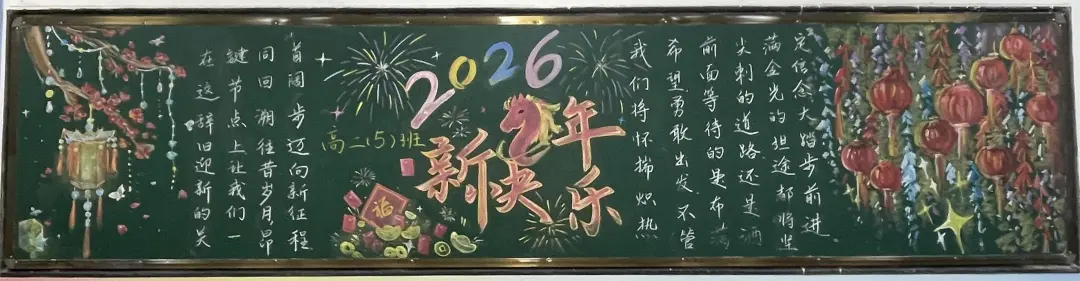 在这辞旧迎新的关
键节点上让我们一
同回溯往昔岁月昂
首阔步迈向新征程
2026
高二(5)班
新年
快乐
福
我们将怀揣炽热
希望勇敢出发不管
前面等待的是布满
尖刺的道路还是洒
满金光的坦途都将坚
定信念大踏步前进